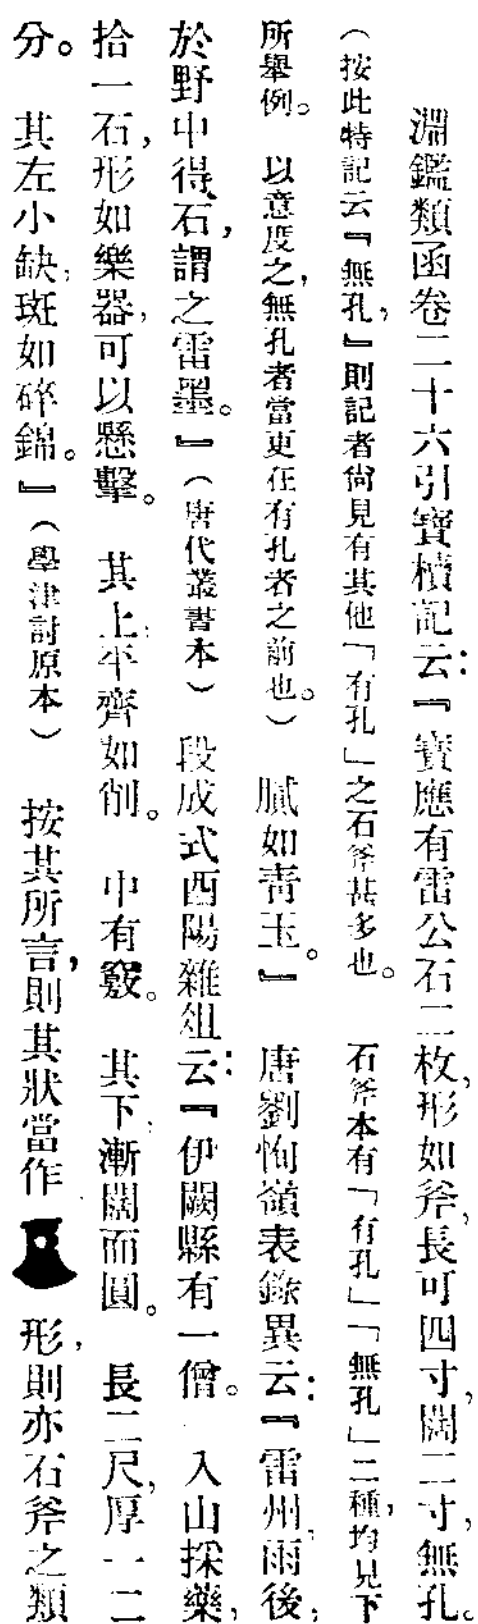 淵鑑類函卷二十六引寶櫝記云：『寶應有雷公石二枚，形如斧，長可四寸，闊二寸，無孔。
（按此特記云『無孔，』則記者尙見有其他「有孔」之石斧甚多也。石斧本有「有孔」「無孔」二種，均見下
所舉例。以意度之，無孔者當更在有孔者之前也。）膩如靑玉。』唐劉恂嶺表錄異云：『雷州，雨後，
於野中得石，謂之雷墨。』（唐代叢書本）段成式酉陽雜俎云：『伊闕縣有一僧。入山採藥，
拾一石，形如樂器，可以懸擊。其上，平齊如削。中有竅。其下，漸闊而圓。長二尺，厚一二
分。其左小缺，斑如碎錦。』（學津討原本）按其所言，則其狀當作形，則亦石斧之類